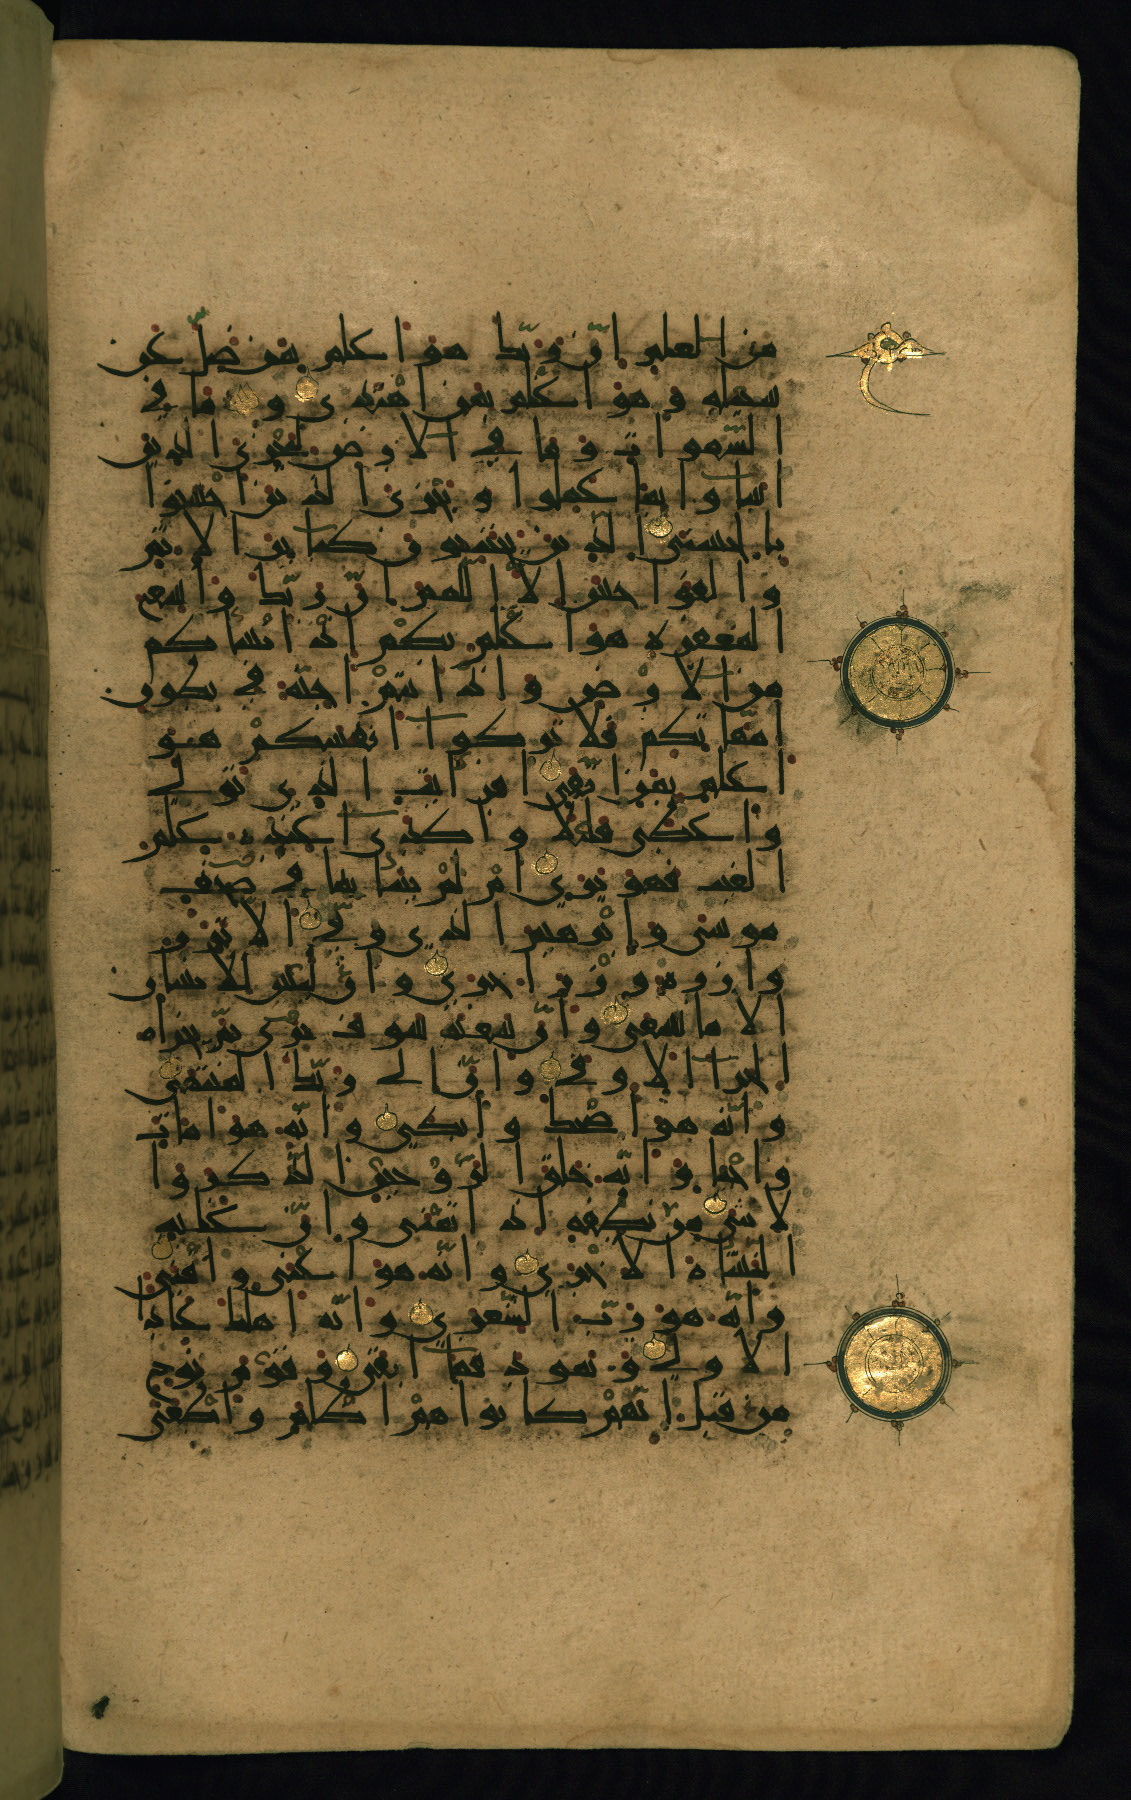 من العلم ان ربك هو اعلم بمن ضل عن
سبيله وهو اعلم بمن اهتدى ولله ما في
السموات وما في الارض ليجزي الذين
اساوا بما عملوا ويجزي الذين احسنوا
بالحسنى الذين يجتنبون كبائر الاثم
والفواحش الا اللمم ان ربك واسع
المغفرة هو اعلم بكم اذ انشاكم
من الارض واذ انتم اجنة في بطون
امهاتكم فلا تزكوا انفسكم هو
اعلم بمن اتقى افرايت الذي تولى
واعطى قليلا واكدى اعنده علم
الغيب فهو يرى ام لم ينبا بما في صحف
موسى وابرهيم الذي وفى الا تزر
وازرة وزر اخرى وان ليس للانسان
الا ما سعى وان سعيه سوف يرى ثم يجزاه
الجزا الاوفى وان الى ربك المنتهى
وانه هو اضحك وابكى وانه هو امات
واحيا وانه خلق الزوجين الذكر وا
لانثى من نطفة اذا تمنى وان عليه
النشاة الاخرى وانه هو اغنى واقنى
وانه هو رب الشعرى وانه اهلك عادا
الاولى وثمود فما ابقى وقوم نوح
من قبل انهم كانوا هم اظلم واطغى